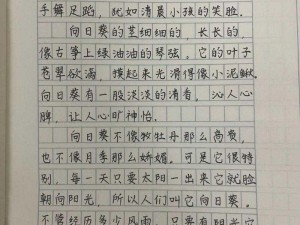 手舞足蹈，犹如清晨小孩的笑脸。
向日葵的茎细细的，长长的，
像古筝上绿油油的琴弦。它的叶子
苍翠欲滴，摸起来光滑得像小泥鳅。
向日葵有一股淡淡的清香，沁人心
脾，让人心旷神怡。
向日葵不像牡丹那么高贵，
也不像月季那么娇媚。可是它很特
别，每一天只要太阳一出来它就脸
朝向阳光，所以人们叫它向日葵。
不管经历多少风雨，只要有阳光它